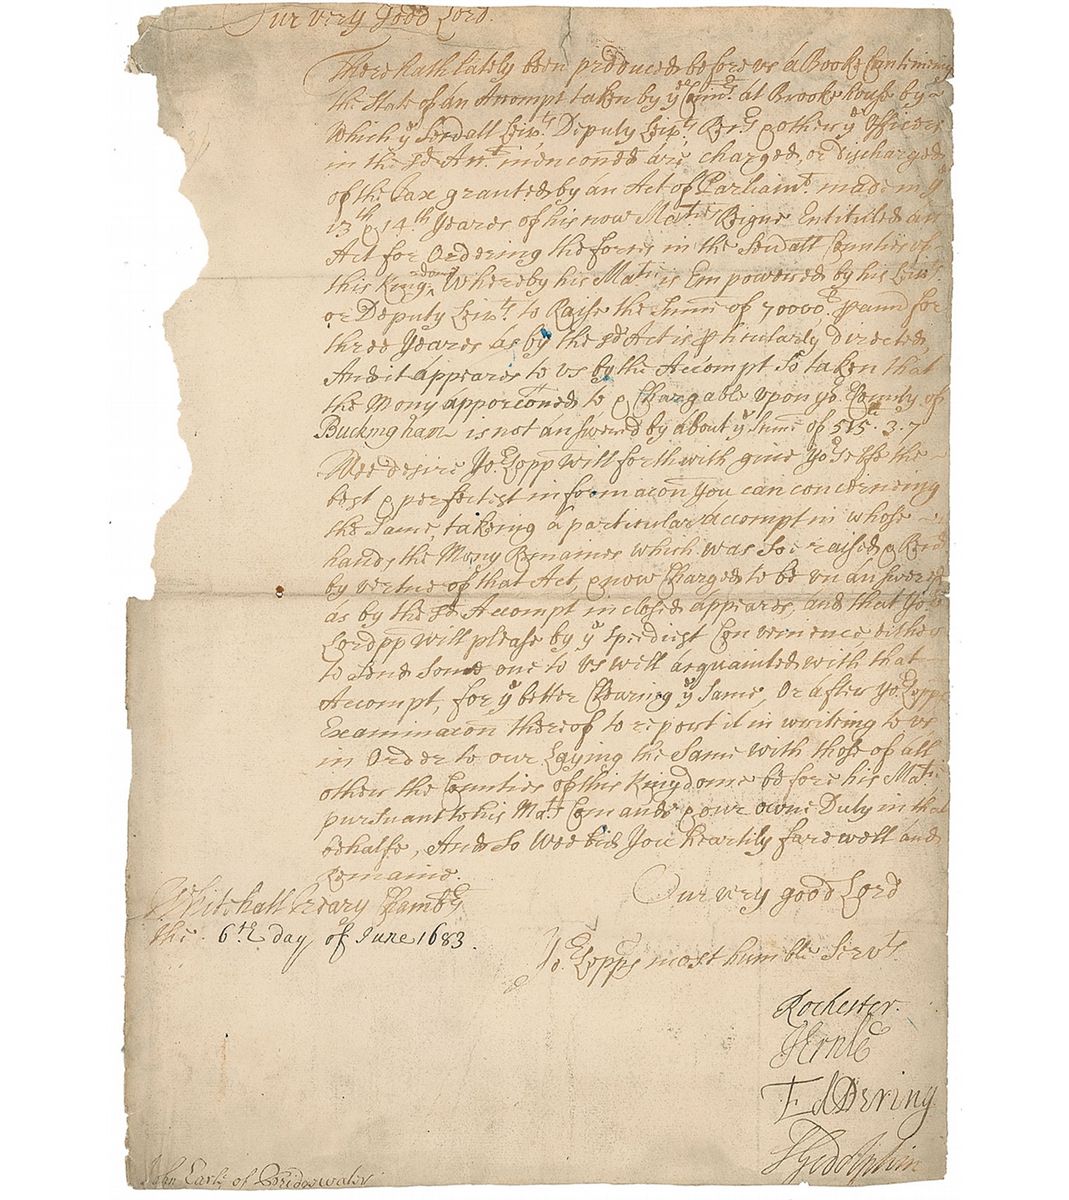 Our very good Lord.
There hath lately been produced before us a Booke Conteining
the State of an Accompt taken by yͤ Com͞rs. at Brooke house by
Which yͤ Severall Leivᵗˢ. Deputy Leivᵗˢ Rec͞rs & other yͤ Officers
in the sᵈ Accᵗ menconed are charged, or discharged
of the Tax granted by an Act of Parliamᵗ. made in yͤ
13ᵗʰ & 14ᵗʰ Yeares of his now Maᵗⁱᵉˢ Reigne Entituled an
Act for Ordering the forces in the Severall Counties of
this Kingdome, Whereby his Maᵗⁱᵉ is Empowered by his Leivᵗˢ
or Deputy Leivᵗˢ. to Raise the Summ of 70000 ₤ p ann for
three Yeares as by the sᵈ Act is pticularly directed,
And it appeares to vs by the Accompt So taken that
the Mony apporconed to & Chargable vpon yoͬ County of
Buckingham is not answered by about yͤ Summ of 515. 3. 7
Wee desire Yoͬ Lopp will forthwith give Yoͬ Selfe the
best & perfectest informacon You can concerning
the Same, taking a particular accompt in whose
hands the Mony Remaines which was Soe raised & Recd
by vertue of that Act, & now Charged to be vnanswered
as by the sᵈ Accompt inclosed appeares, and that Yoͬ
Lordpp will please by yͤ Speediest Convenience either
to Send Some one to vs well acquainted with that
Accompt, for yͤ better Clearing yͤ Same, Or after Yoͬ Lopps
Examinacon thereof to report it in writing to vs
in Order to our Laying the Same with those of all
other the Counties of this Kingdome before his Maᵗⁱᵉ
pursuant to his Maᵗˢ Comands & our owne Duty in that
behalfe, And So Wee bid You heartily farewell and
Remaine.
Our very good Lord
Whitehall Treary Chambʳˢ
the 6ᵗʰ day of June 1683.
Yoͬ Lopps most humble Servᵗˢ
Rochester.
J Ernle
Ed Dering
S Godolphin
John Earle of Bridgewater